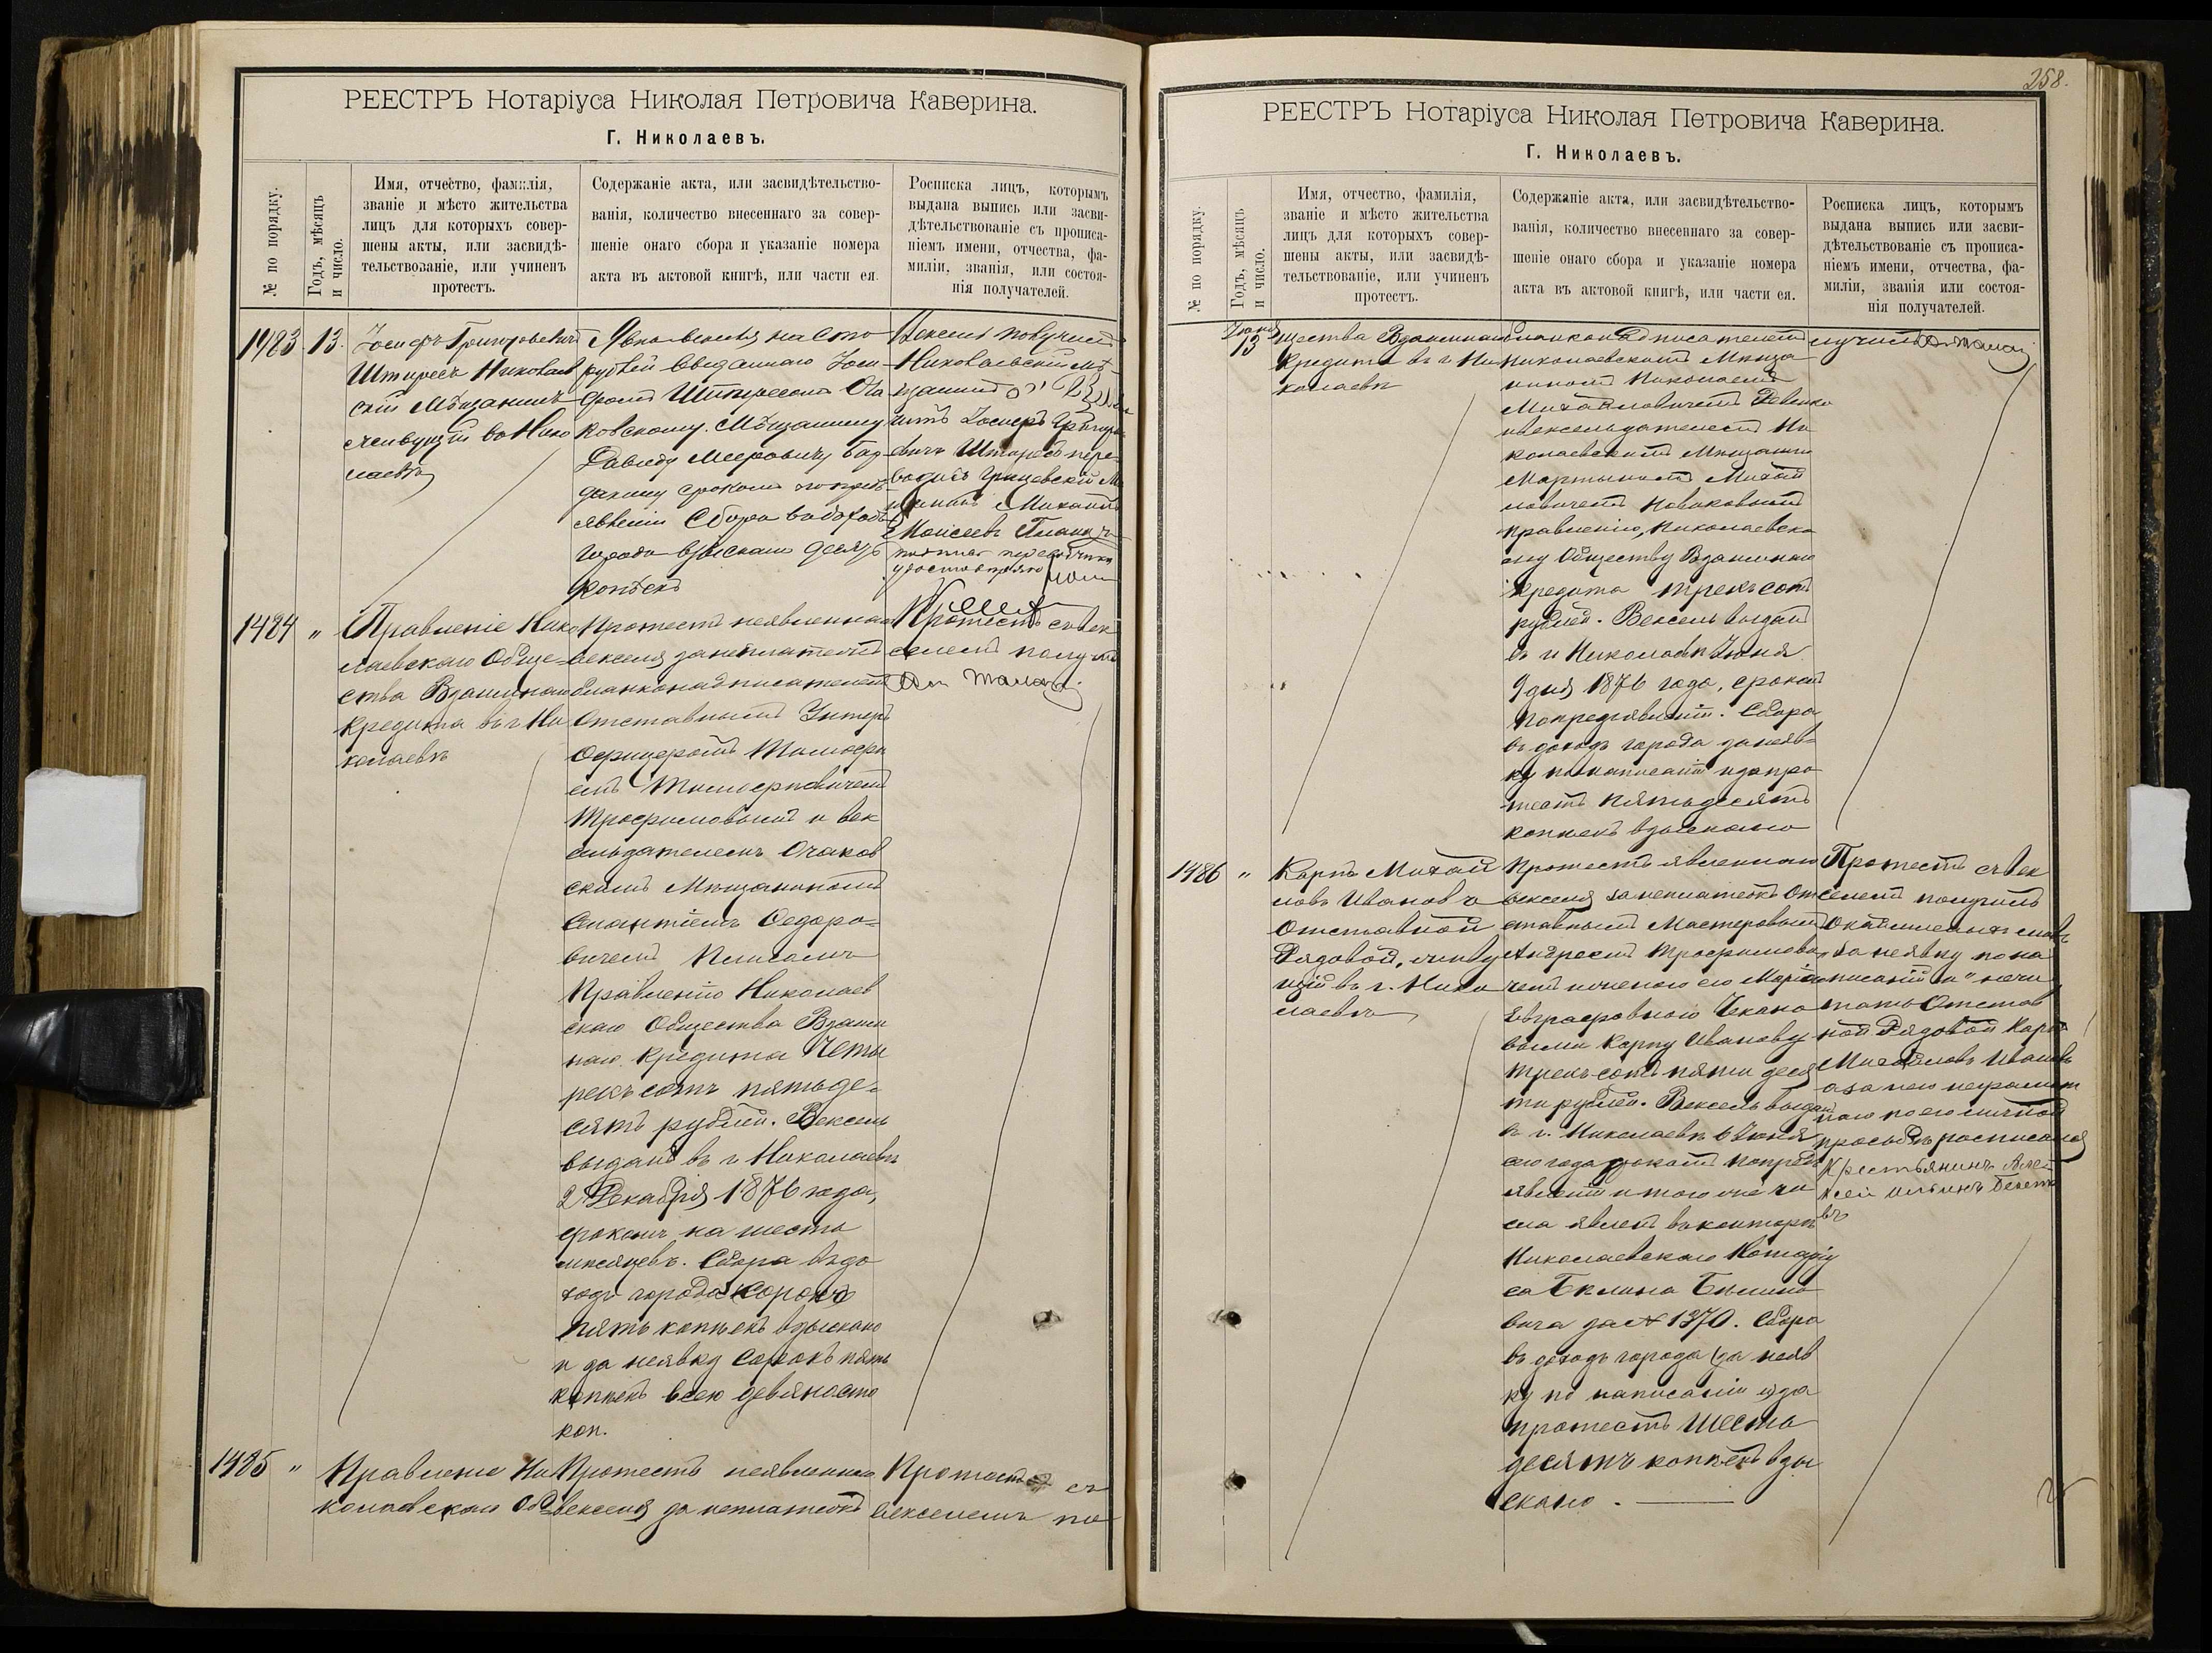 РЕЕСТРЪ Нотаріуса Николая Петровича Каверина.
Г. Николаевъ.
№ по порядку.
Годъ, мѣсяцъ
и число.
Имя, отчество, фамилія,
званіе и мѣсто жительства
лицъ для которыхъ совер-
шены акты, или засвидѣ-
тельствованіе, или учиненъ
протестъ.
Содержаніе акта, или засвидѣтельство-
ванія, количество внесеннаго за совер-
шеніе онаго сбора и указаніе номера
акта въ актовой книгѣ, или части ея.
Росписка лицъ, которымъ
выдана выпись или засви-
дѣтельствованіе съ прописа-
ніемъ имени, отчества, фа-
миліи, званія, или состоя-
нія получателей.
1483
13.
Іосифъ Григорьевичъ
Штиресъ Николаев
скій Мѣщанинъ
живущій въ Нико
лаевѣ
Явка векселя на сто
рублей выданнаго Іоси
фомъ Штиресомъ Оча
ковскому Мѣщанину
Давиду Мееровичу
срокомъ по предъ
явленіи Сбора въ доходъ
города взыскано десять
копѣекъ
Вексель получилъ
Николаевскій мѣ
щанинъ
Іосифъ Григорь
евичъ Штиресъ пере
водилъ
Михаилъ
Моисеевъ
подпись переводчика
удостовѣряю
1484
"
Правленіе Нико
лаевскаго Обще-
ства Взаимнаго
Кредита въ г Ни
колаевѣ
Протестъ неявленнаго
векселя за неплатежъ
бланконадписателемъ
Отставнымъ Унтеръ
Офицеромъ Тимофе
емъ Тимофѣевичемъ
Трофимовымъ и век
сельдателемъ Очаков
скимъ Мѣщаниномъ
Федоро-
вичемъ
Правленію Николаев
скаго Общества Взаим
наго Кредита Четы
рехъ сотъ пятьде-
сятъ рублей. Вексель
выданъ въ г Николаевѣ
2 Декабря 1876 года,
срокомъ на шесть
мѣсяцевъ. Сбора въ до
ходъ города сорокъ
пять копѣекъ взыскано
и за неявку сорокъ пять
копѣекъ всего девяносто
коп.
Протестъ съ век
селемъ получилъ
1485
"
Правленіе Ни
колаевскаго Об
Протестъ неявленнаго
векселя за неплатежъ
Протестъ съ
векселемъ по
258.
РЕЕСТРЪ Нотаріуса Николая Петровича Каверина.
Г. Николаевъ.
№ по порядку.
Годъ, мѣсяцъ
и число.
Имя, отчество, фамилія,
званіе и мѣсто жительства
лицъ для которыхъ совер-
шены акты, или засвидѣ-
тельствованіе, или учиненъ
протестъ.
Содержаніе акта, или засвидѣтельство-
ванія, количество внесеннаго за совер-
шеніе онаго сбора и указаніе номера
акта въ актовой книгѣ, или части ея.
Росписка лицъ, которымъ
выдана выпись или засви-
дѣтельствованіе съ прописа-
ніемъ имени, отчества, фа-
миліи, званія или состоя-
нія получателей.
Іюня
13
щества Взаимнаго
Кредита въ г Ни
колаевѣ
бланконадписателемъ
Николаевскимъ Мѣща
ниномъ Николаемъ
Михайловичемъ Ревенко
и вексельдателемъ Ни
колаевскимъ Мѣщани
Мартыномъ Михай
ловичемъ Новиковымъ
Правленію Николаевско
му Обществу Взаимнаго
Кредита трехъ сотъ
рублей. Вексель выданъ
въ г Николаевѣ Іюня
9 дня 1876 года, срокомъ
по предъявленіи. Сбора
въ доходъ города за неяв-
ку по написаніи и за про
тестъ пятьдесятъ
копѣекъ взыскано
лучилъ
1486
"
Карпъ Михай
ловъ Ивановъ
Отставной
Рядовой, живу
щій въ г. Нико
лаевѣ
Протестъ явленнаго
векселя за неплатежъ От
ставнымъ Мастеровымъ
Андреемъ Трофимови
чемъ и женою его Маріею
Евграфовною Чекано
выми Карпу Иванову
трехъ сотъ пяти деся
ти рублей. Вексель выданъ
въ г. Николаевѣ 6 Іюня
сего года срокомъ по предъ
явленіи и того же чи
сла явленъ въ конторѣ
Николаевскаго Нотаріу
са
вича за № 1370. Сбора
въ доходъ города (за неяв
ку по написаніи и) за
протестъ шесть
десятъ копѣекъ взы
скано.
Протестъ съ век
селемъ получилъ
Окаймленныя слова
"за неявку по на
писаніи и" не чи
тать Отстав
ной Рядовой Карпъ
Михайловъ Ивановъ
а за него неграмот
наго по его личной
просьбѣ росписался
Крестьянинъ Але
ксѣй